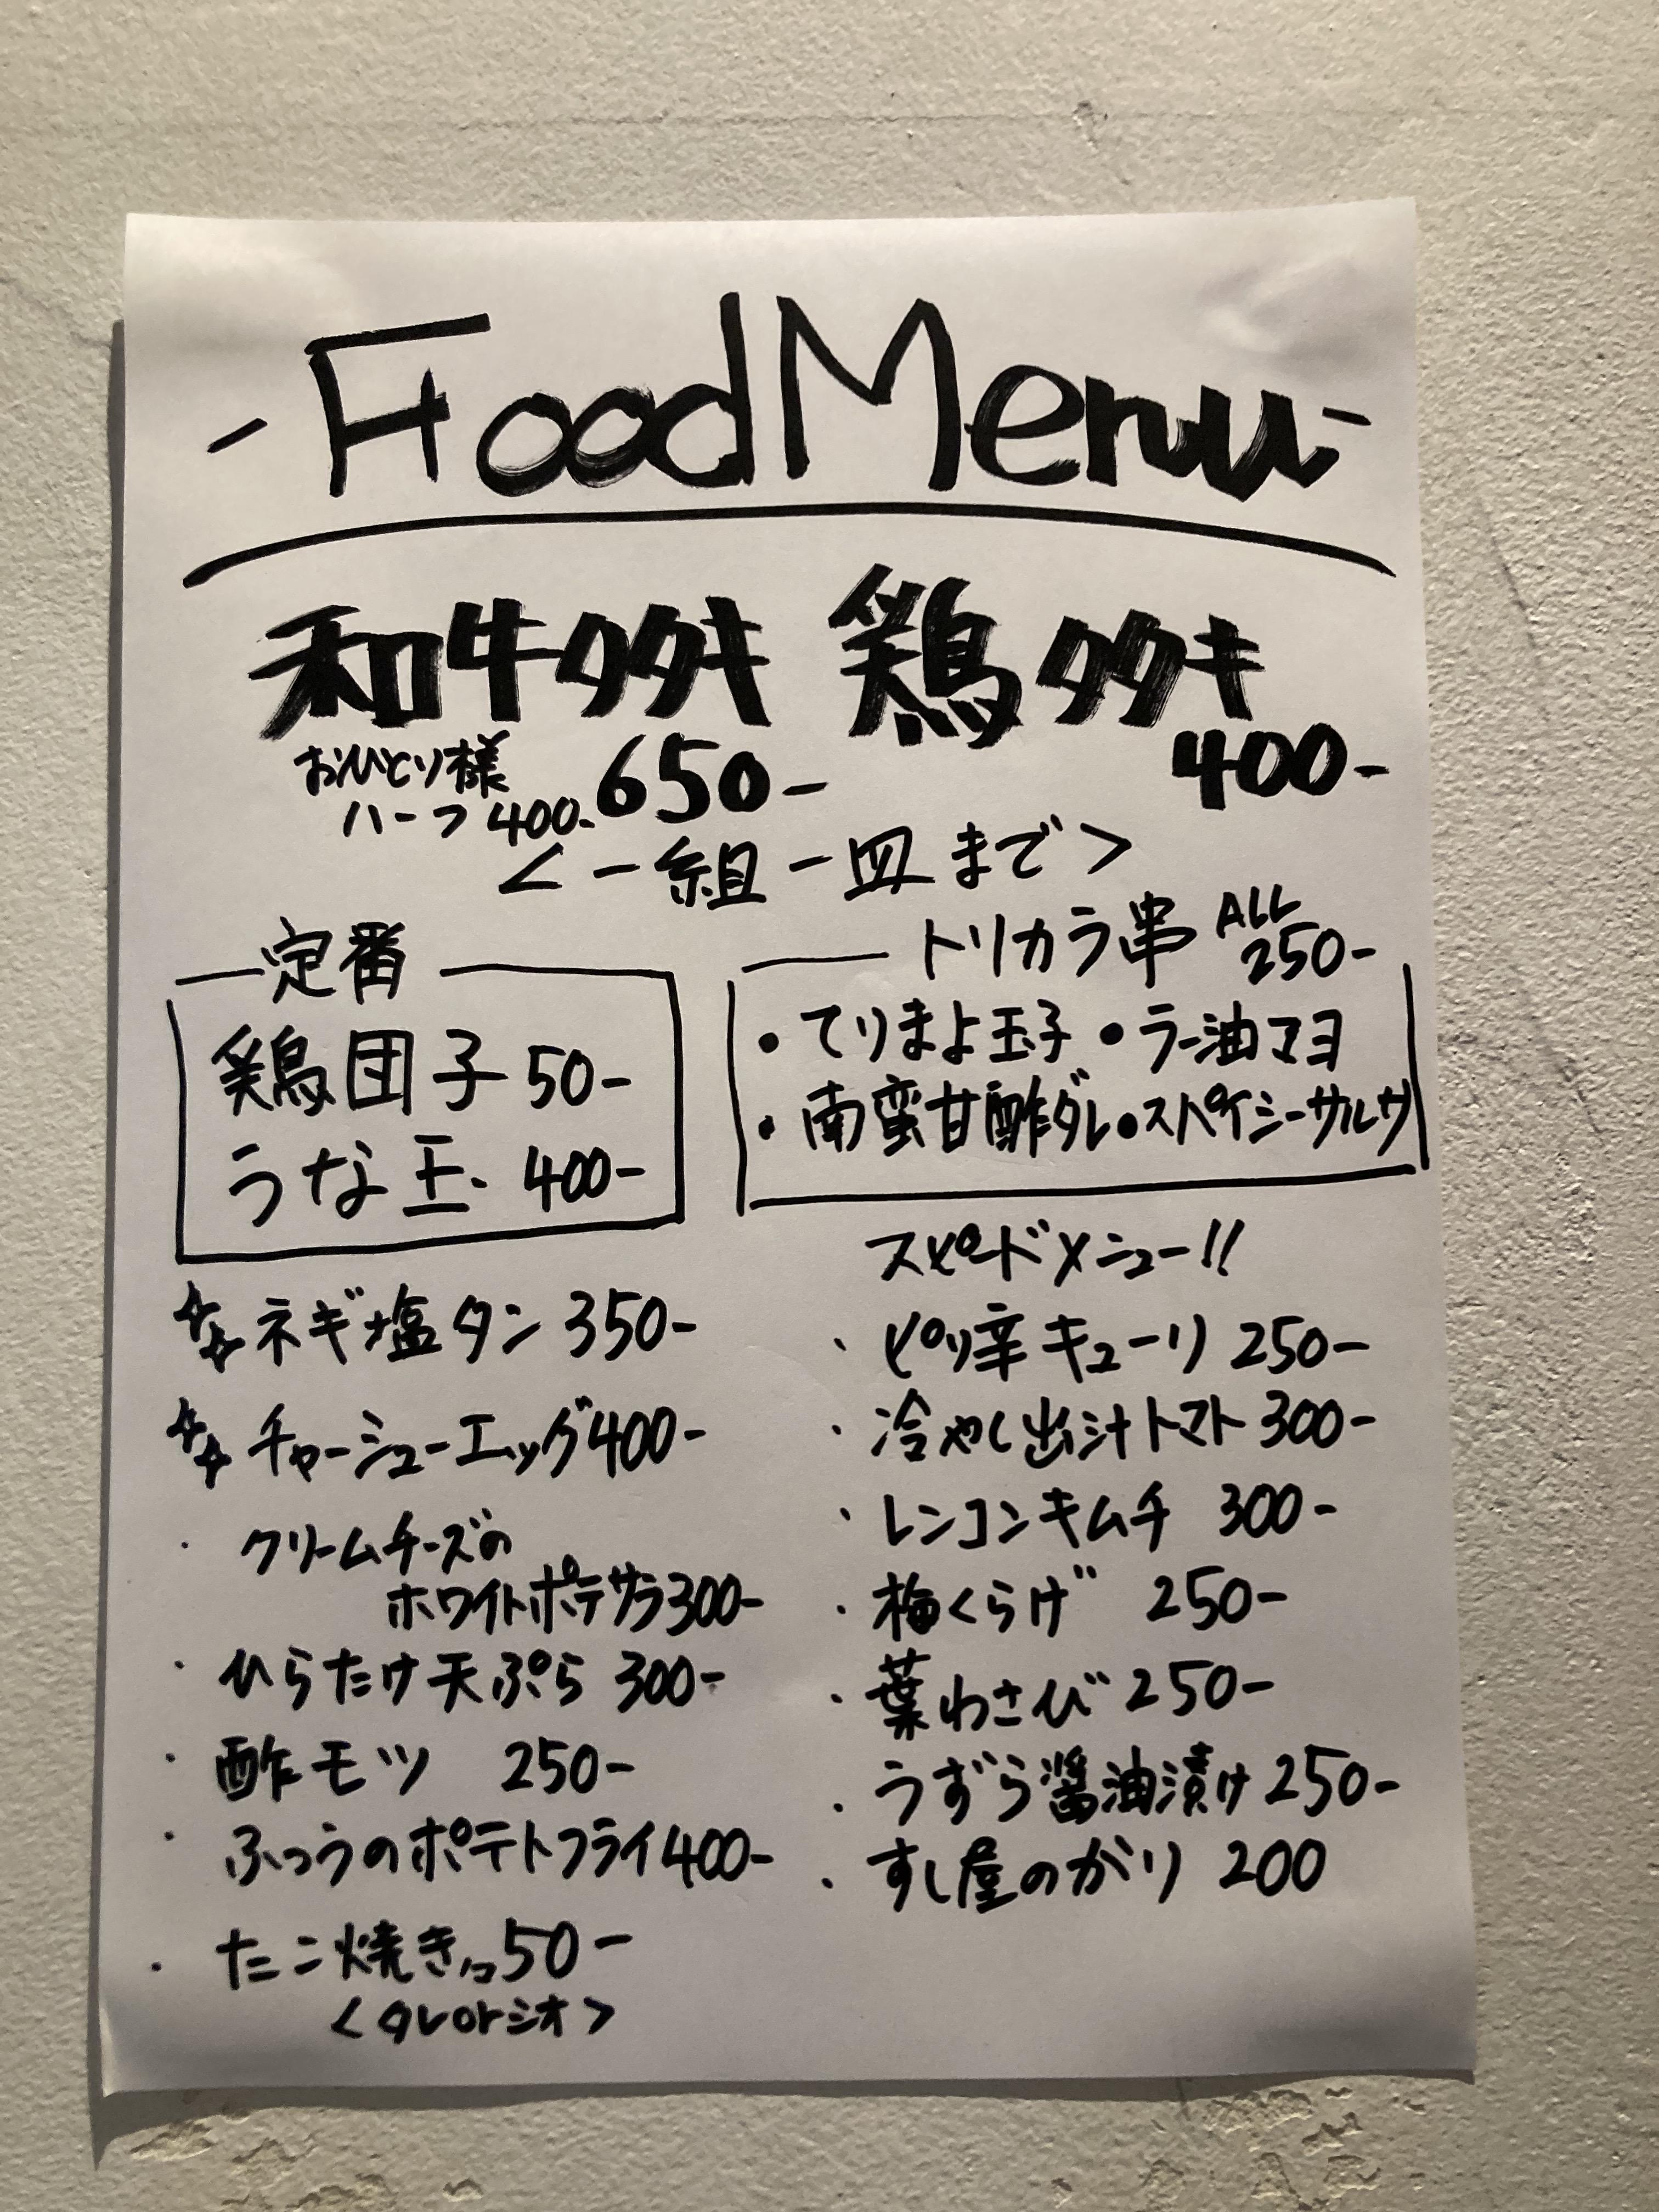 - Food Menu -
和牛タタキ 鶏タタキ
おひとり様 650- 400-
ハーフ400-
<一組一皿まで>
定番
鶏団子 50-
うな玉 400-
トリカラ串 ALL 250-
・てりまよ玉子 ・ラー油マヨ
・南蛮甘酢ダレ ・スパイシーサルサ
☆☆ネギ塩タン 350-
☆☆チャーシューエッグ 400-
・クリームチーズの
ホワイトポテサラ 300-
・ひらたけ天ぷら 300-
・酢モツ 250-
・ふつうのポテトフライ 400-
・たこ焼き 1コ 50-
<タレorシオ>
スピードメニュー!!
・ピリ辛キューリ 250-
・冷やし出汁トマト 300-
・レンコンキムチ 300-
・梅くらげ 250-
・葉わさび 250-
・うずら醤油漬け 250-
・すし屋のがり 200